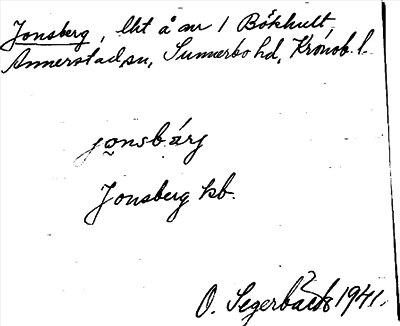 Jonsberg, lht å av 1 Bökhult,
Annerstad sn, Sunnerbo hd, Kronob. l.
jo̤nsbárj
Jonsberg kb.
O. Segerbäck 1941.